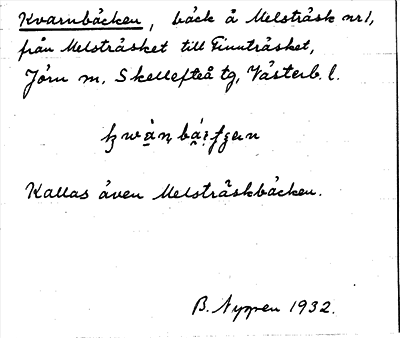 Kvarnbäcken, bäck å Melsträsk nr 1,
från Melsträsket till Finnträsket,
Jörn sn, Skellefteå tg, Västerb. l.
Kallas även Melsträskbäcken.
B. Nyman 1932.